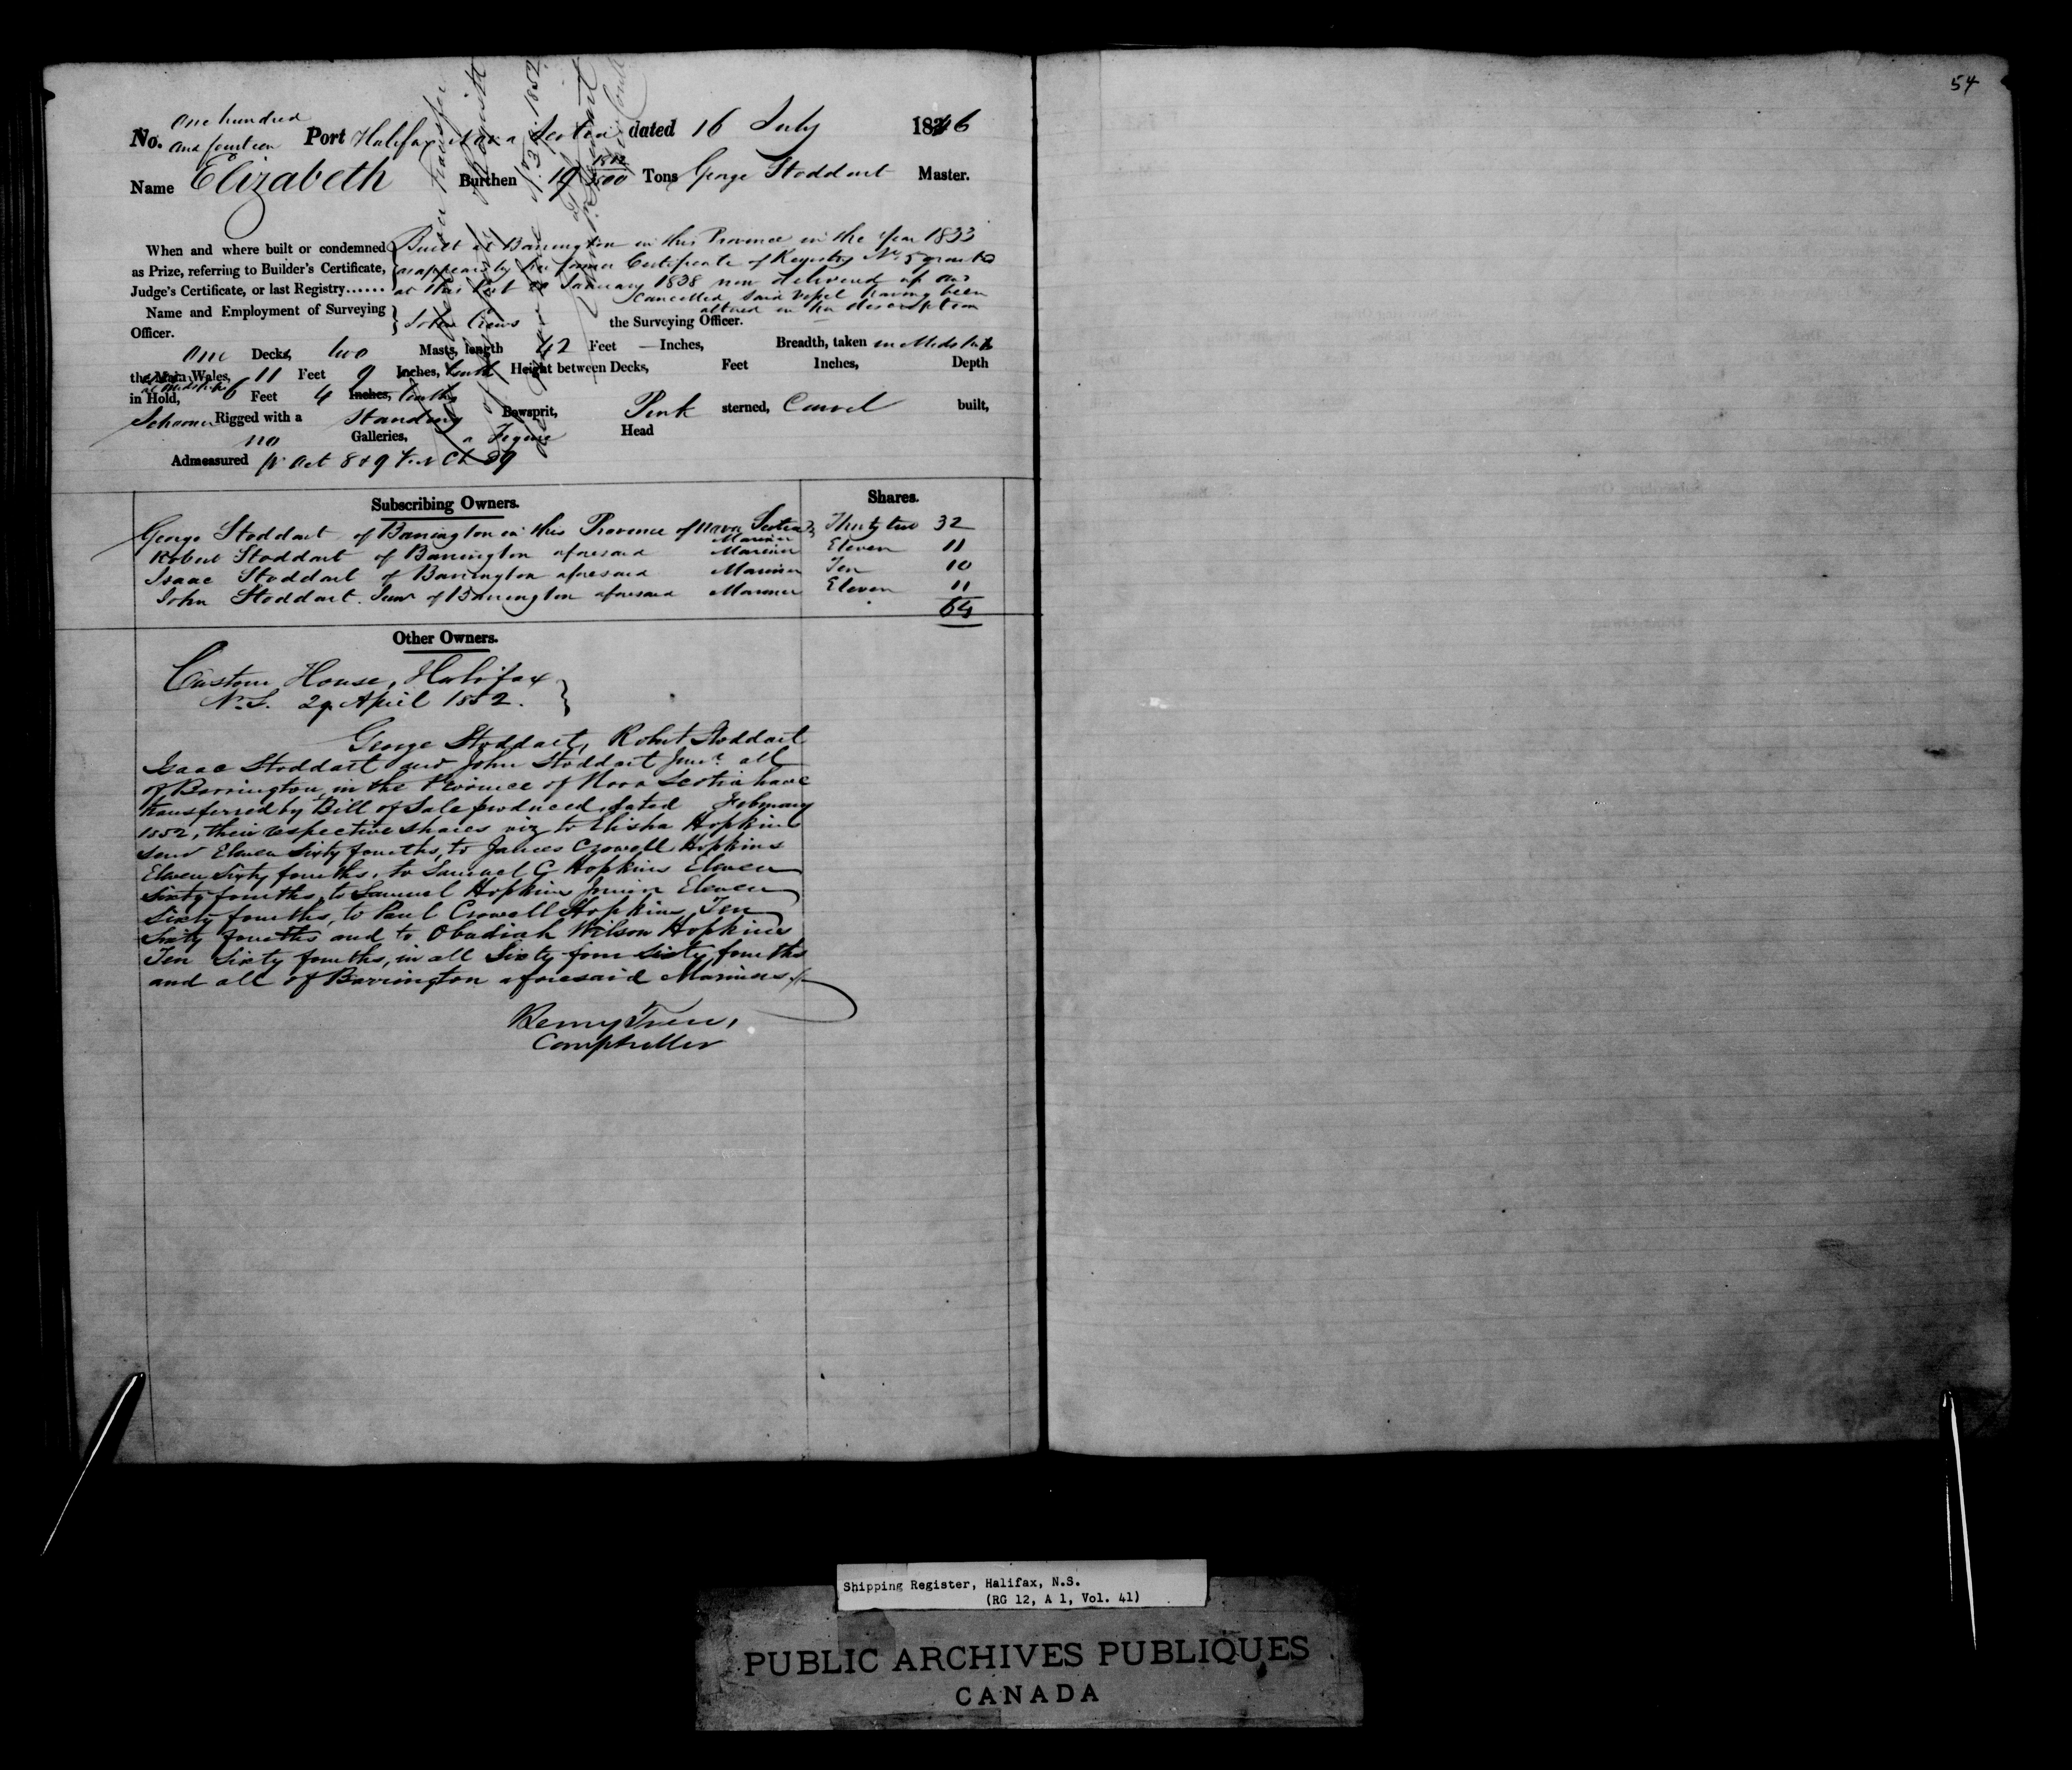 54
One hundred
No. and fourteen Port Halifax Nova Scotia dated 16 July 1846
Name Elizabeth Burthen 19 Tons George Stoddart Master.
When and where built or condemned Built at Barrington in this Province in the Year 1833
as Prize, referring to Builder's Certificate, as appears by her former Certificate of Registry No. 5 granted
Judge's Certificate, or last Registry...... at this Port January 1838 now delivered up and
cancelled said Vessel having been
altered in her description
Name and Employment of Surveying
Officer. John Crews the Surveying Officer.
One Decks, two Masts, length 42 Feet — Inches, Breadth, taken in Midships
the Main Wales, 11 Feet 9 Inches, tenths Height between Decks, Feet Inches, Depth
at Midships
in Hold, 6 Feet 4 Inches, tenths
Schooner Rigged with a Standing Bowsprit, Pink sterned, Carvel built,
no Galleries, a Figure Head
Admeasured pr Act 8 & 9 Vic Ch 89
Subscribing Owners. Shares.
George Stoddart of Barrington in this Province of Nova Scotia Thirty two 32
Mariner
Robert Stoddart of Barrington aforesaid Mariner Eleven 11
Isaac Stoddart of Barrington aforesaid Mariner Ten 10
John Stoddart Junr of Barrington aforesaid Mariner Eleven 11
64
Other Owners.
Custom House, Halifax
N.S. 29 April 1852.
George Stoddart, Robert Stoddart
Isaac Stoddart and John Stoddart Junr. all
of Barrington, in the Province of Nova Scotia have
transferred by Bill of Sale produced, dated February
1852, their respective shares viz to Elisha Hopkins
Senr Eleven Sixty fourths, to James Crowell Hopkins
Eleven Sixty fourths, to Samuel G Hopkins Eleven
Sixty fourths, to Samuel Hopkins Junior Eleven
Sixty fourths, to Paul Crowell Hopkins, Ten
Sixty fourths and to Obadiah Wilson Hopkins
Ten Sixty fourths, in all Sixty four Sixty fourths
and all of Barrington aforesaid Mariners
Comptroller
Shipping Register, Halifax, N.S.
(RG 12, A 1, Vol. 41)
PUBLIC ARCHIVES PUBLIQUES
CANADA